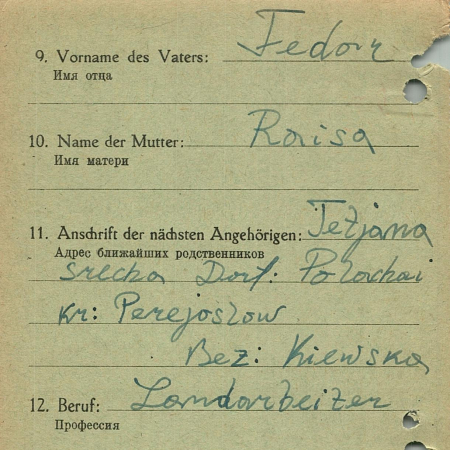 9. Vorname des Vaters: Fedor
Имя отца
10. Name der Mutter: Raisa
Имя матери
11. Anschrift der nächsten Angehörigen: Tetjana
Адрес ближайших родственников
Dorf:
Kr: Perejaslow
Bez: Kiewska
12. Beruf: Landarbeiter
Профессия